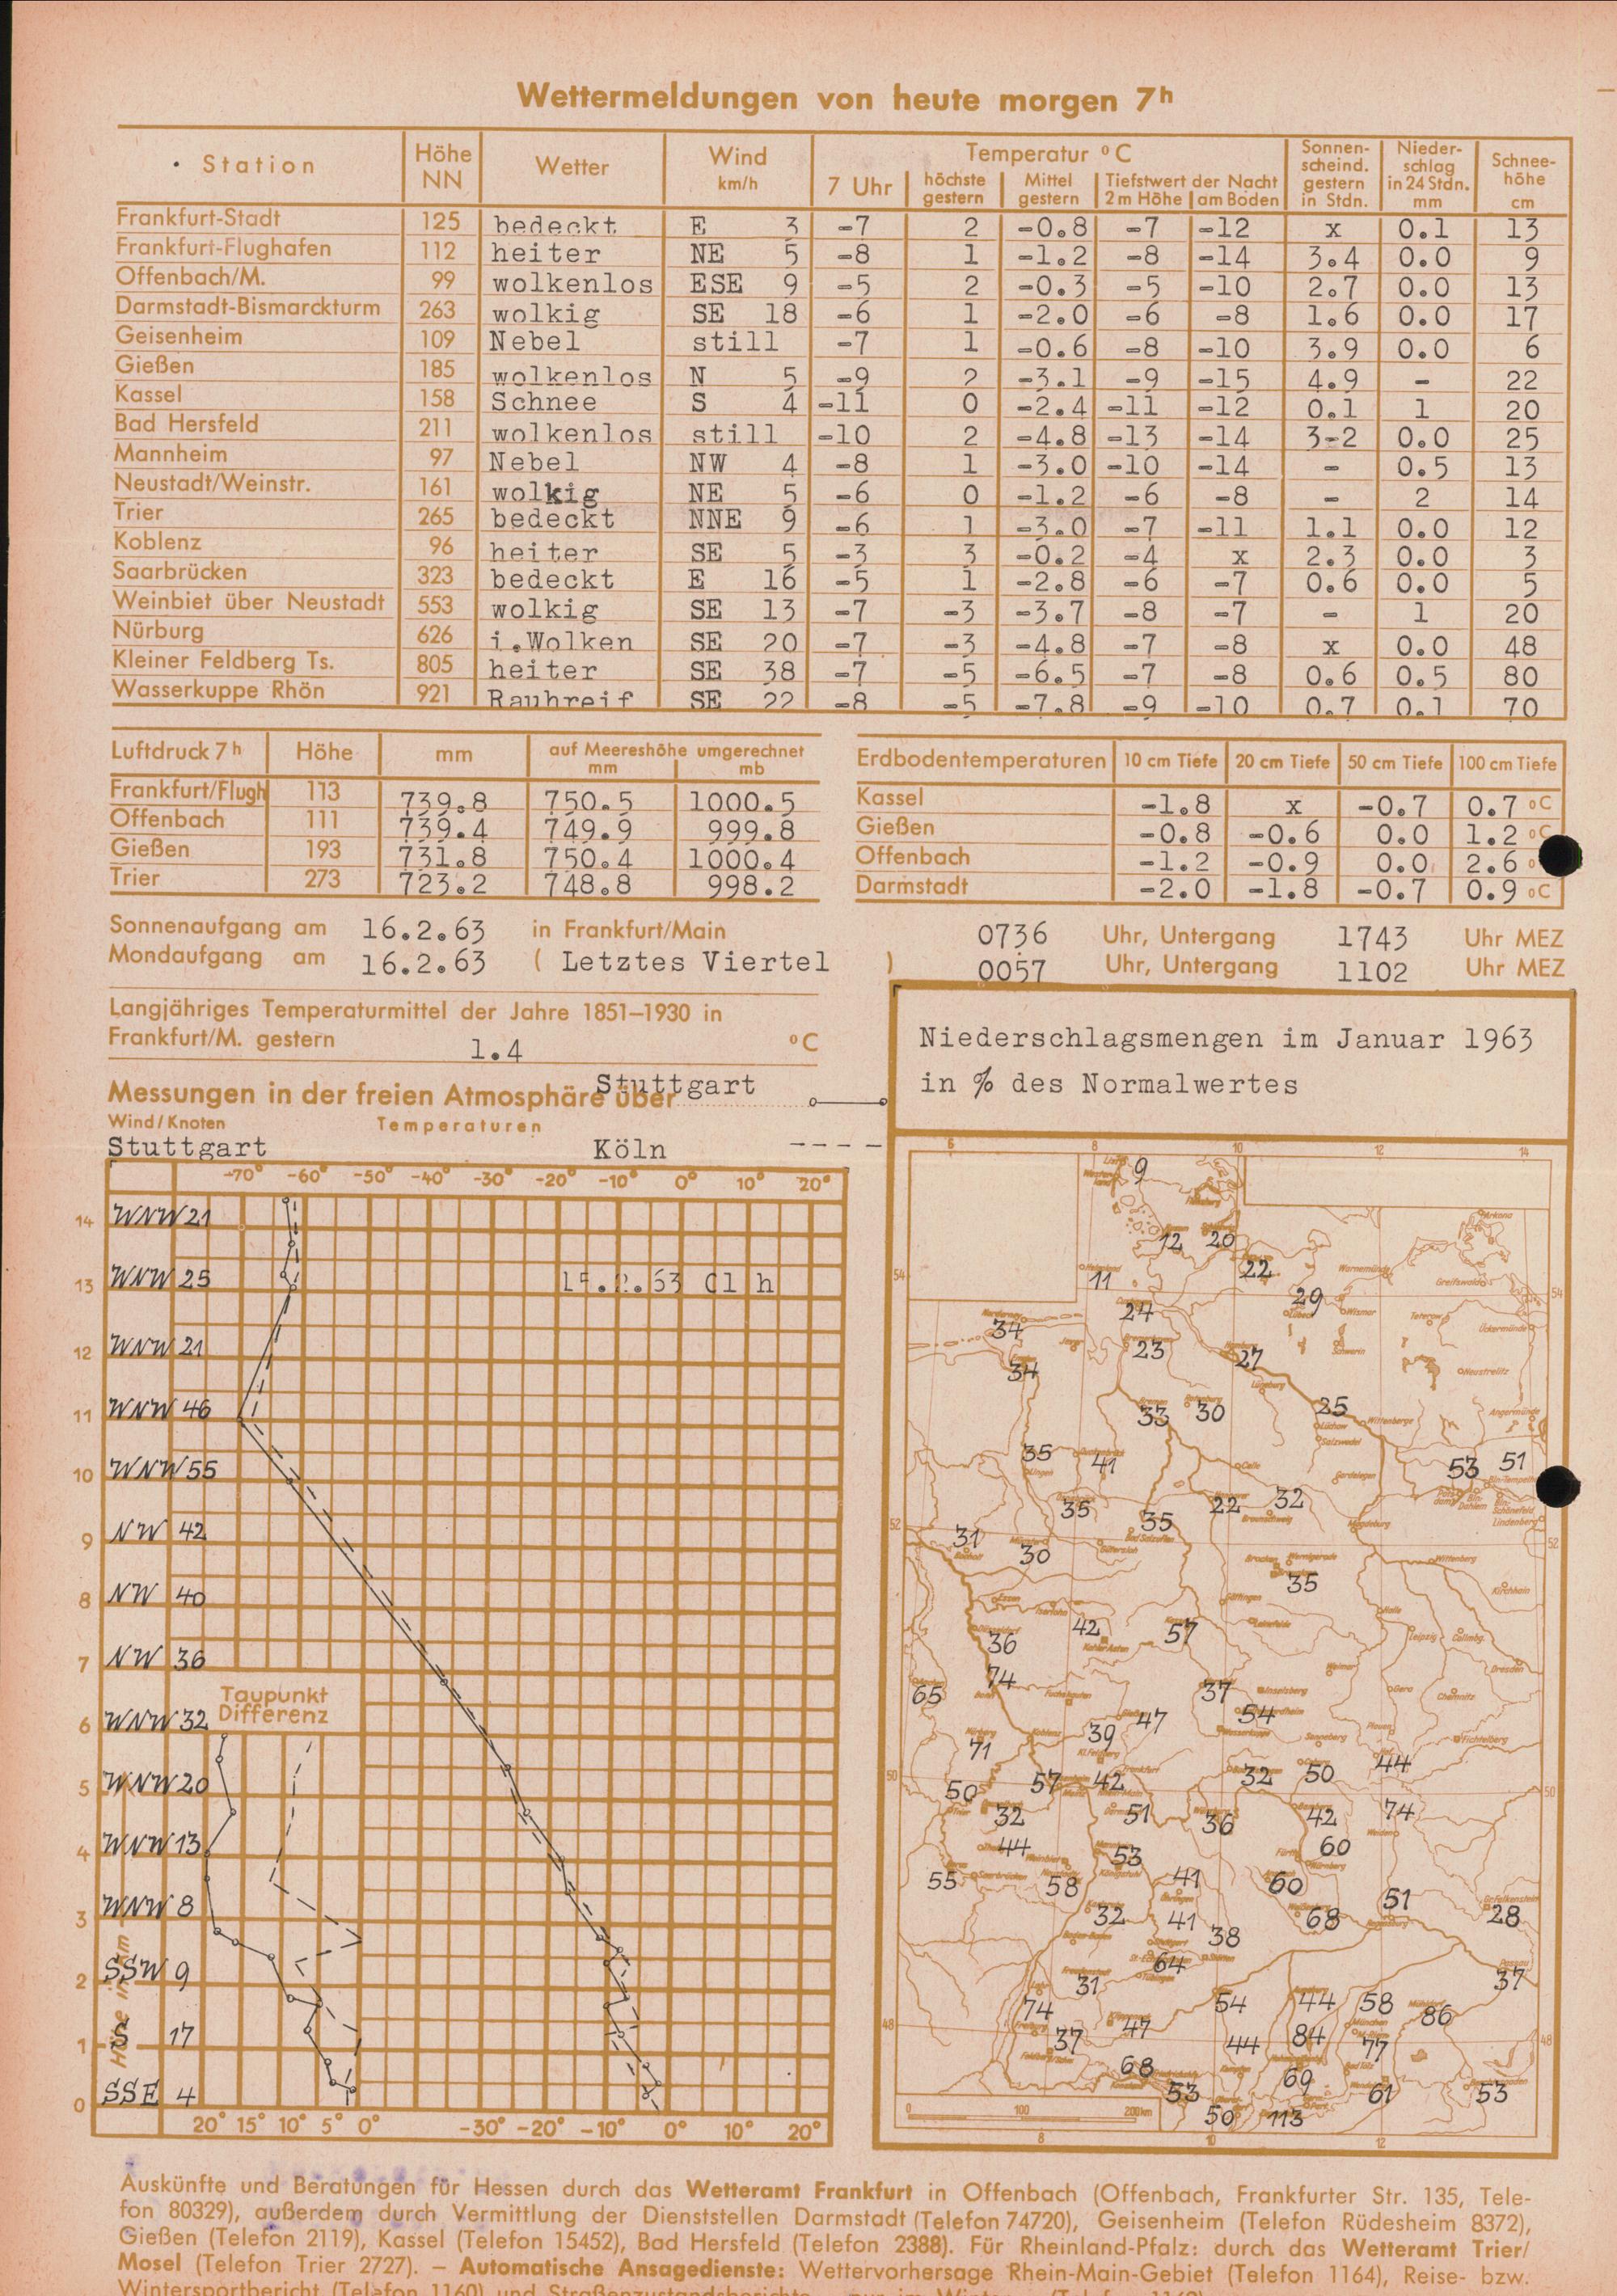 Wettermeldungen von heute morgen 7h
Station Höhe NN Wetter Wind km/h Temperatur °C Sonnenscheind. gestern in Stdn. Niederschlag in 24 Stdn. mm Schneehöhe cm
7 Uhr höchste gestern Mittel gestern Tiefstwert der Nacht 2 m Höhe am Boden
Frankfurt-Stadt 125 bedeckt E 3 -7 2 -0.8 -7 -12 x 0.1 13
Frankfurt-Flughafen 112 heiter NE 5 -8 1 -1.2 -8 -14 3.4 0.0 9
Offenbach/M. 99 wolkenlos ESE 9 -5 2 -0.3 -5 -10 2.7 0.0 13
Darmstadt-Bismarckturm 263 wolkig SE 18 -6 1 -2.0 -6 -8 1.6 0.0 17
Geisenheim 109 Nebel still -7 1 -0.6 -8 -10 3.9 0.0 6
Gießen 185 wolkenlos N 5 -9 2 -3.1 -9 -15 4.9 - 22
Kassel 158 Schnee S 4 -11 0 -2.4 -11 -12 0.1 1 20
Bad Hersfeld 211 wolkenlos still -10 2 -4.8 -13 -14 3-2 0.0 25
Mannheim 97 Nebel NW 4 -8 1 -3.0 -10 -14 - 0.5 13
Neustadt/Weinstr. 161 wolkig NE 5 -6 0 -1.2 -6 -8 - 2 14
Trier 265 bedeckt NNE 9 -6 1 -3.0 -7 -11 1.1 0.0 12
Koblenz 96 heiter SE 5 -3 3 -0.2 -4 x 2.3 0.0 3
Saarbrücken 323 bedeckt E 16 -5 1 -2.8 -6 -7 0.6 0.0 5
Weinbiet über Neustadt 553 wolkig SE 13 -7 -3 -3.7 -8 -7 - 1 20
Nürburg 626 i.Wolken SE 20 -7 -3 -4.8 -7 -8 x 0.0 48
Kleiner Feldberg Ts. 805 heiter SE 38 -7 -5 -6.5 -7 -8 0.6 0.5 80
Wasserkuppe Rhön 921 Rauhreif SE 22 -8 -5 -7.8 -9 -10 0.7 0.1 70
Luftdruck 7h Höhe mm auf Meereshöhe umgerechnet mm mb
Frankfurt/Flugh 113 739.8 750.5 1000.5
Offenbach 111 739.4 749.9 999.8
Gießen 193 731.8 750.4 1000.4
Trier 273 723.2 748.8 998.2
Erdbodentemperaturen 10 cm Tiefe 20 cm Tiefe 50 cm Tiefe 100 cm Tiefe
Kassel -1.8 x -0.7 0.7 °C
Gießen -0.8 -0.6 0.0 1.2 °C
Offenbach -1.2 -0.9 0.0 2.6 °
Darmstadt -2.0 -1.8 -0.7 0.9 °C
Sonnenaufgang am 16.2.63 in Frankfurt/Main 0736 Uhr, Untergang 1743 Uhr MEZ
Mondaufgang am 16.2.63 ( Letztes Viertel ) 0057 Uhr, Untergang 1102 Uhr MEZ
Langjähriges Temperaturmittel der Jahre 1851–1930 in
Frankfurt/M. gestern 1.4 °C
Messungen in der freien Atmosphäre über Stuttgart
Wind/Knoten Temperaturen
Stuttgart Köln
-70° -60° -50° -40° -30° -20° -10° 0° 10° 20°
14 WNW 21
13 WNW 25 .63 01 h
12 WNW 21
11 WNW 46
10 WNW 55
9 NW 42
8 NW 40
7 NW 36
Taupunkt
Differenz
6 WNW 32
5 WNW 20
4 WNW 13
3 WNW 8
2 SSW 9
1 S 17
0 SSE 4
Höhe in km
20° 15° 10° 5° 0° -30° -20° -10° 0° 10° 20°
Niederschlagsmengen im Januar 1963
in % des Normalwertes
6 8 10 12 14
9
12 20
11 22
54 54
24 29
34 23 27
34
33 30 25
35 41 53 51
35 35 22 32
52 52
31 30 35
36 42 57
65 74 37 54
71 39 47
50 50
50 57 42 32 50 44
32 51 36 42 74
44 53 60
55 58 41 60
32 41 38 68 51 28
64
31 37
74 54 44 58 86
48 48
37 47 44 84 77
68 53 69 61 53
50 113
0 100 200km
8 10 12
Auskünfte und Beratungen für Hessen durch das Wetteramt Frankfurt in Offenbach (Offenbach, Frankfurter Str. 135, Tele-
fon 80329), außerdem durch Vermittlung der Dienststellen Darmstadt (Telefon 74720), Geisenheim (Telefon Rüdesheim 8372),
Gießen (Telefon 2119), Kassel (Telefon 15452), Bad Hersfeld (Telefon 2388). Für Rheinland-Pfalz: durch das Wetteramt Trier/
Mosel (Telefon Trier 2727). – Automatische Ansagedienste: Wettervorhersage Rhein-Main-Gebiet (Telefon 1164), Reise- bzw.
Wintersportbericht (Telefon 1160) und Straßenzustandsberichte